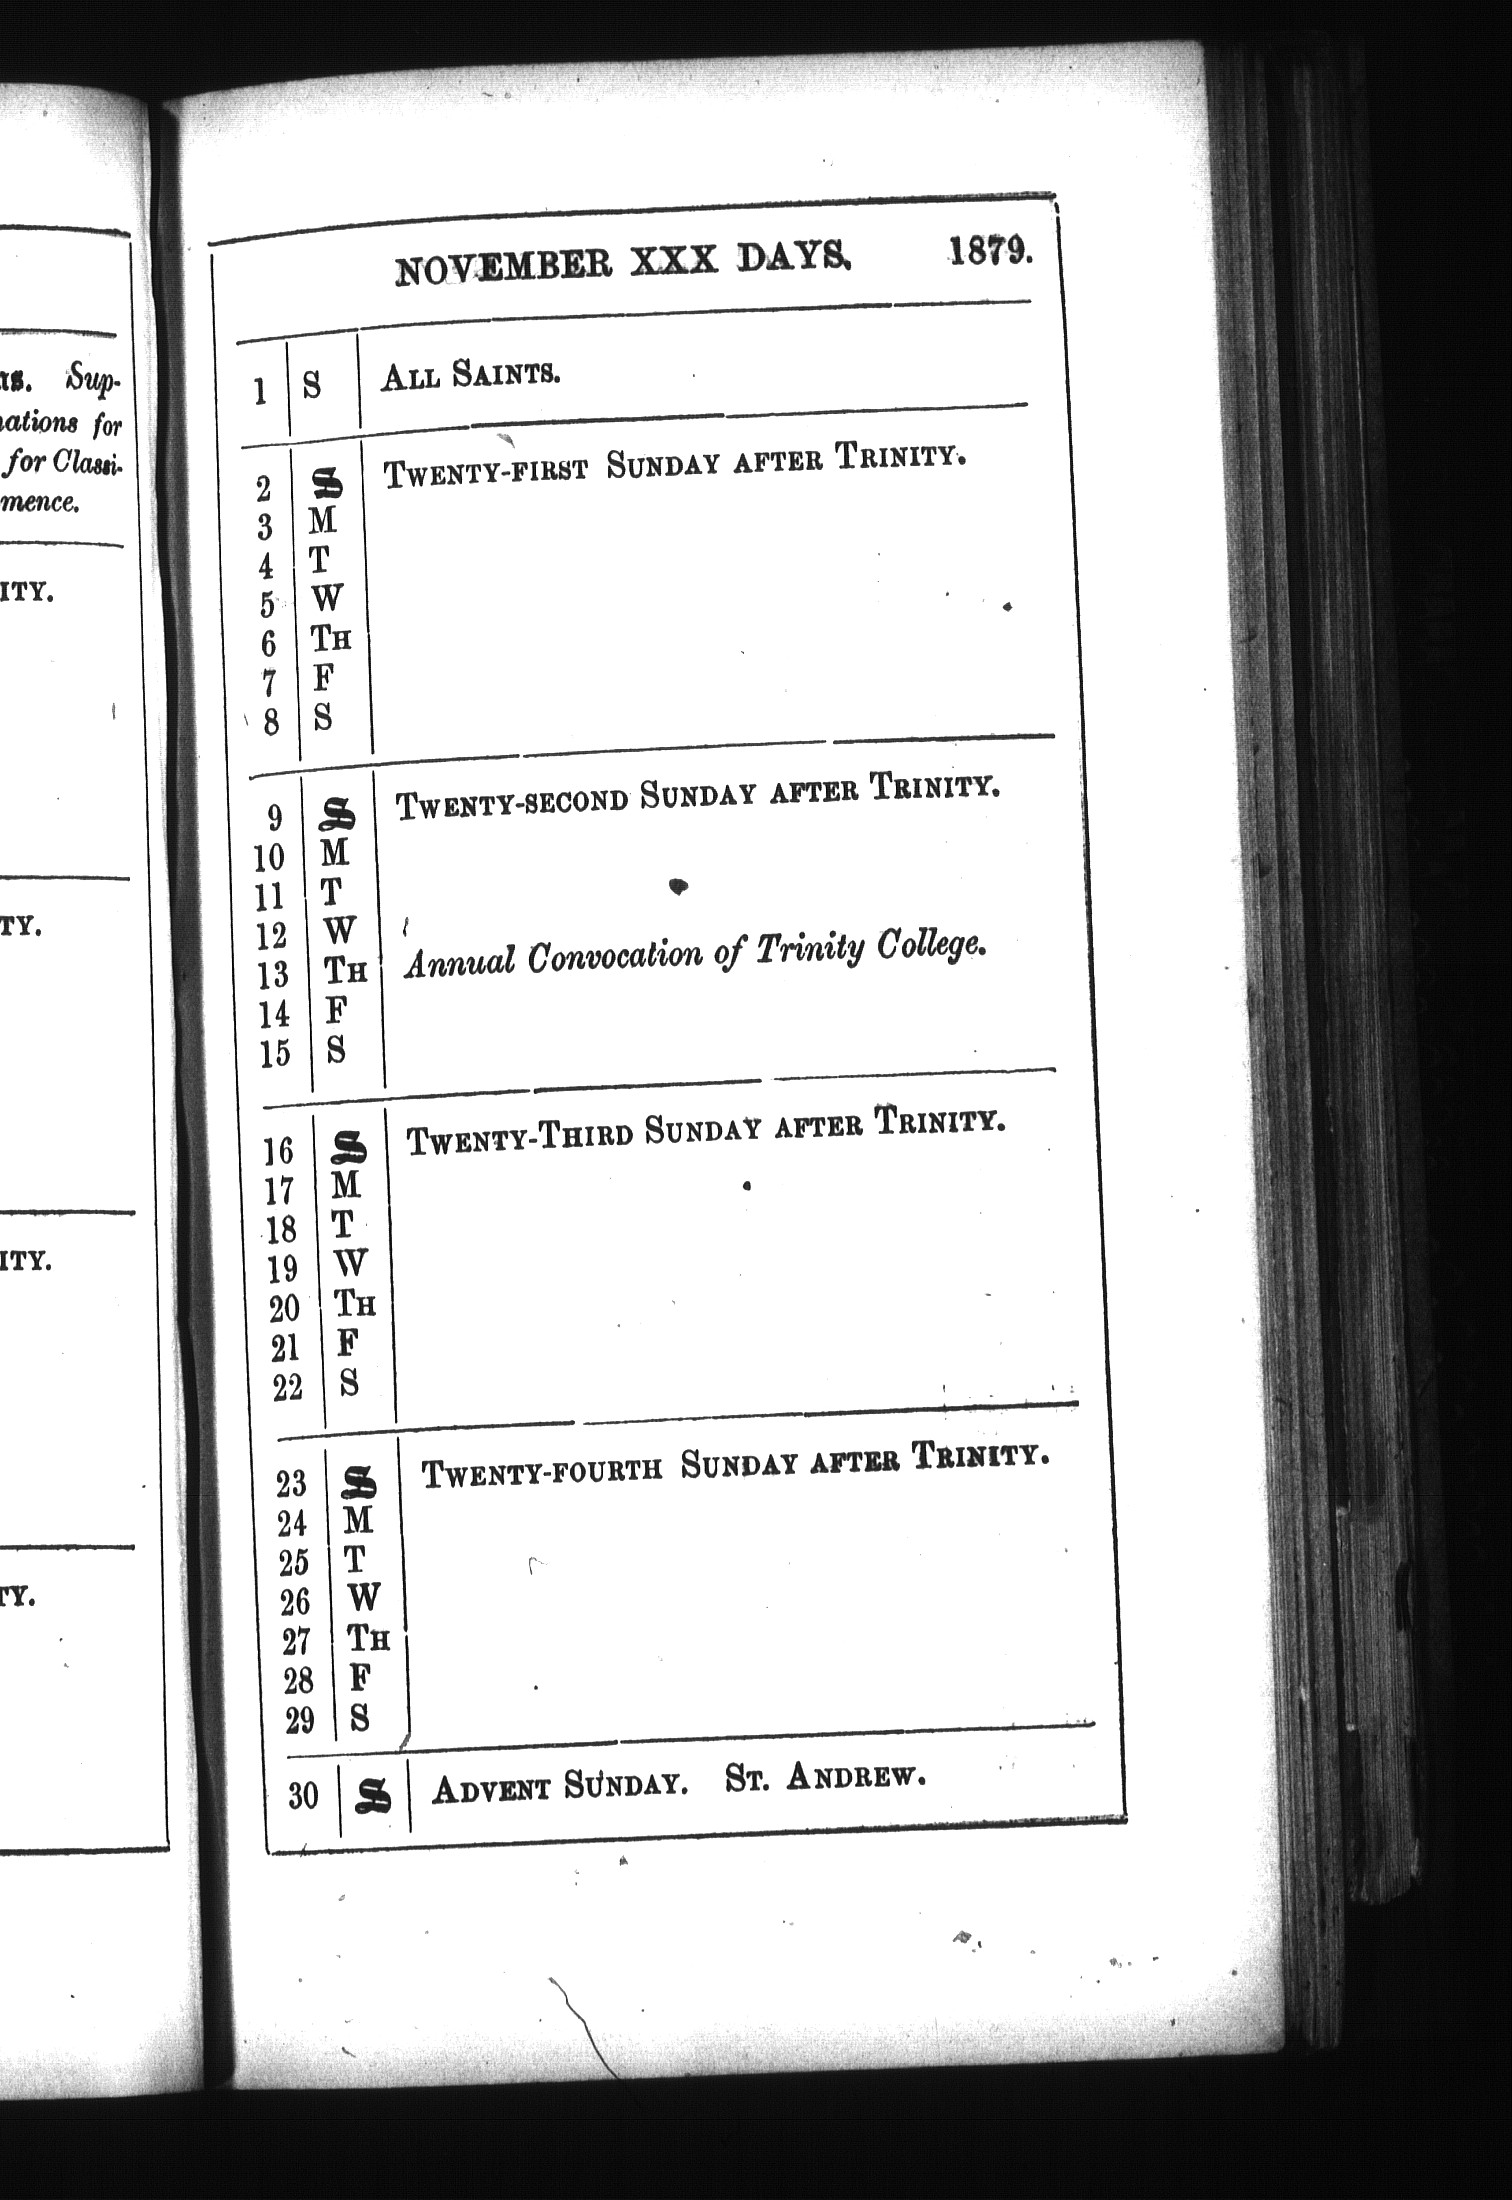 NOVEMBER XXX DAYS. 1879.
1 S ALL SAINTS.
2 S TWENTY-FIRST SUNDAY AFTER TRINITY.
3 M
4 T
5 W
6 TH
7 F
8 S
9 S TWENTY-SECOND SUNDAY AFTER TRINITY.
10 M
11 T
12 W
13 TH Annual Convocation of Trinity College.
14 F
15 S
16 S TWENTY-THIRD SUNDAY AFTER TRINITY.
17 M
18 T
19 W
20 TH
21 F
22 S
23 S TWENTY-FOURTH SUNDAY AFTER TRINITY.
24 M
25 T
26 W
27 TH
28 F
29 S
30 S ADVENT SUNDAY. ST. ANDREW.
Sup-
for
for Classi-
mence.